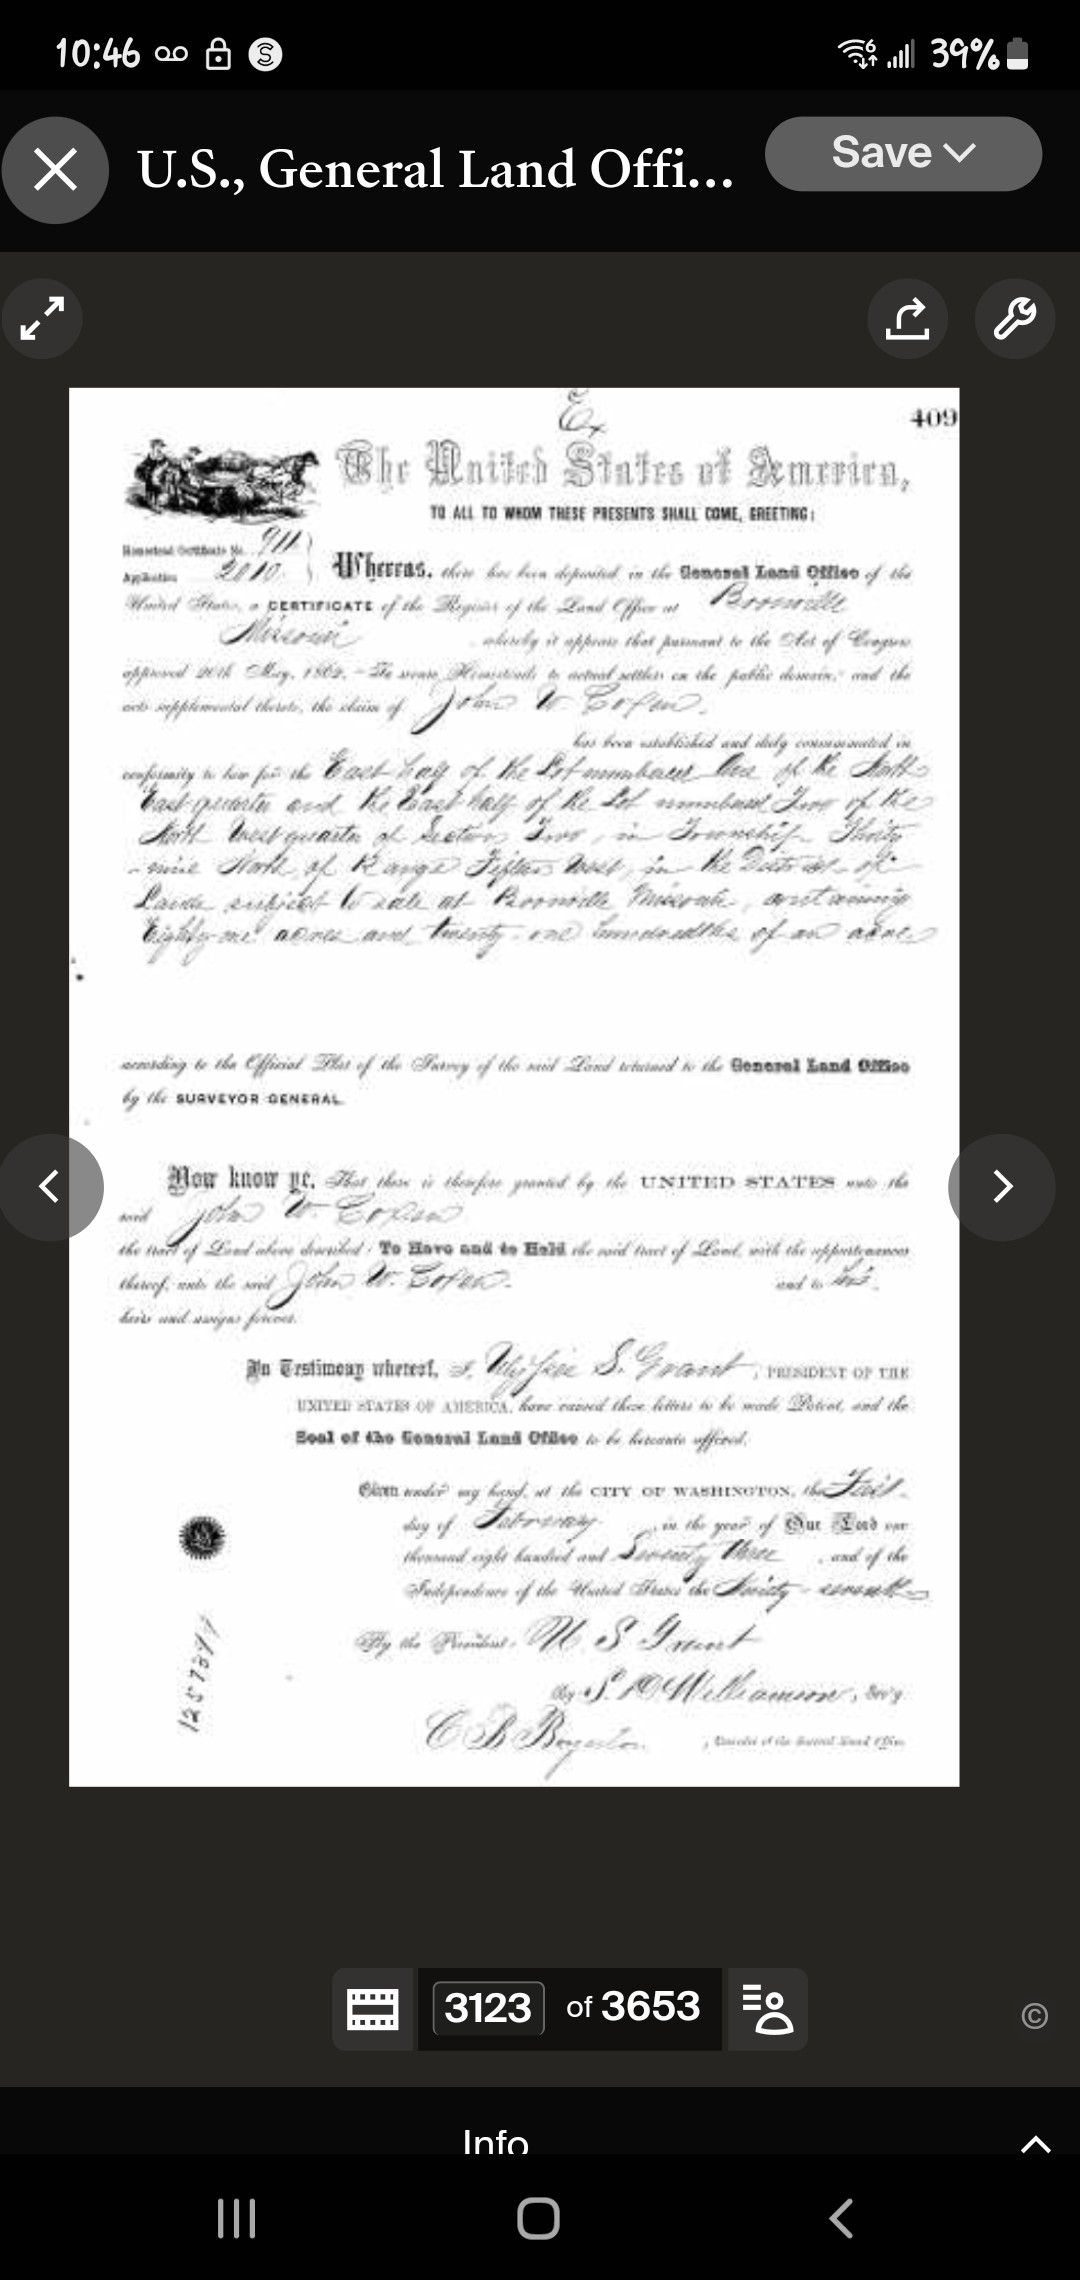 10:46
39%
U.S., General Land Offi...
Save
Ex
409
The United States of America,
TO ALL TO WHOM THESE PRESENTS SHALL COME, GREETING:
Homestead Certificate No. 911
Application 2010
Whereas, there has been deposited in the General Land Office of the
United States, a CERTIFICATE of the Register of the Land Office at Boonville
Missouri whereby it appears that pursuant to the Act of Congress
approved 20th May, 1862, "To secure Homesteads to actual settlers on the public domain," and the
acts supplemental thereto, the claim of John W.
has been established and duly consummated in
conformity to law for the East half of the Lot numbered One of the North
East quarter and the East half of the Lot numbered Two of the
North West quarter of Section Two, in Township Thirty
-nine North, of Range Fifteen West, in the District of
Lands subject to sale at Boonville Missouri, containing
Eighty-one acres and twenty-one hundredths of an acre
according to the Official Plat of the Survey of the said Land returned to the General Land Office
by the SURVEYOR GENERAL.
Now know ye, That there is therefore granted by the UNITED STATES unto the
said John W.
the tract of Land above described: To Have and to Hold the said tract of Land, with the appurtenances
thereof, unto the said John W. and to his
heirs and assigns forever.
In Testimony whereof, I, Ulysses S. Grant, PRESIDENT OF THE
UNITED STATES OF AMERICA, have caused these letters to be made Patent, and the
Seal of the General Land Office to be hereunto affixed.
Given under my hand, at the CITY OF WASHINGTON, the First
day of February, in the year of Our Lord one
thousand eight hundred and Seventy three, and of the
Independence of the United States the Ninety-seventh
By the President: U. S. Grant
By S. D. Williamson, Sec'y.
C B Boynton, Recorder of the General Land Office.
3123 of 3653
©
Info